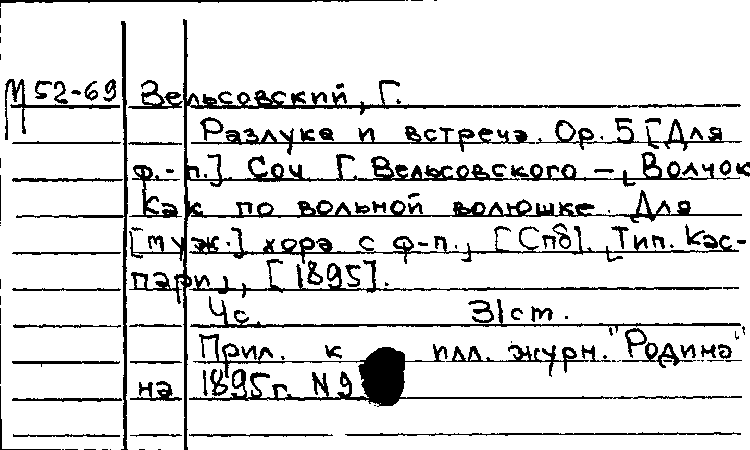 М 52-69 Вельсовский, Г.
Разлука и встреча. Op. 5 [Для
ф.-п.]. Соч. Г. Вельсовского – Волчок
Как по вольной волюшке. Для
[муж.] хора с ф-п., [Спб]. Тип. Кас-
пари, [1895].
4с. 31cm.
Прил. к илл. журн. "Родина"
на 1895г. N9